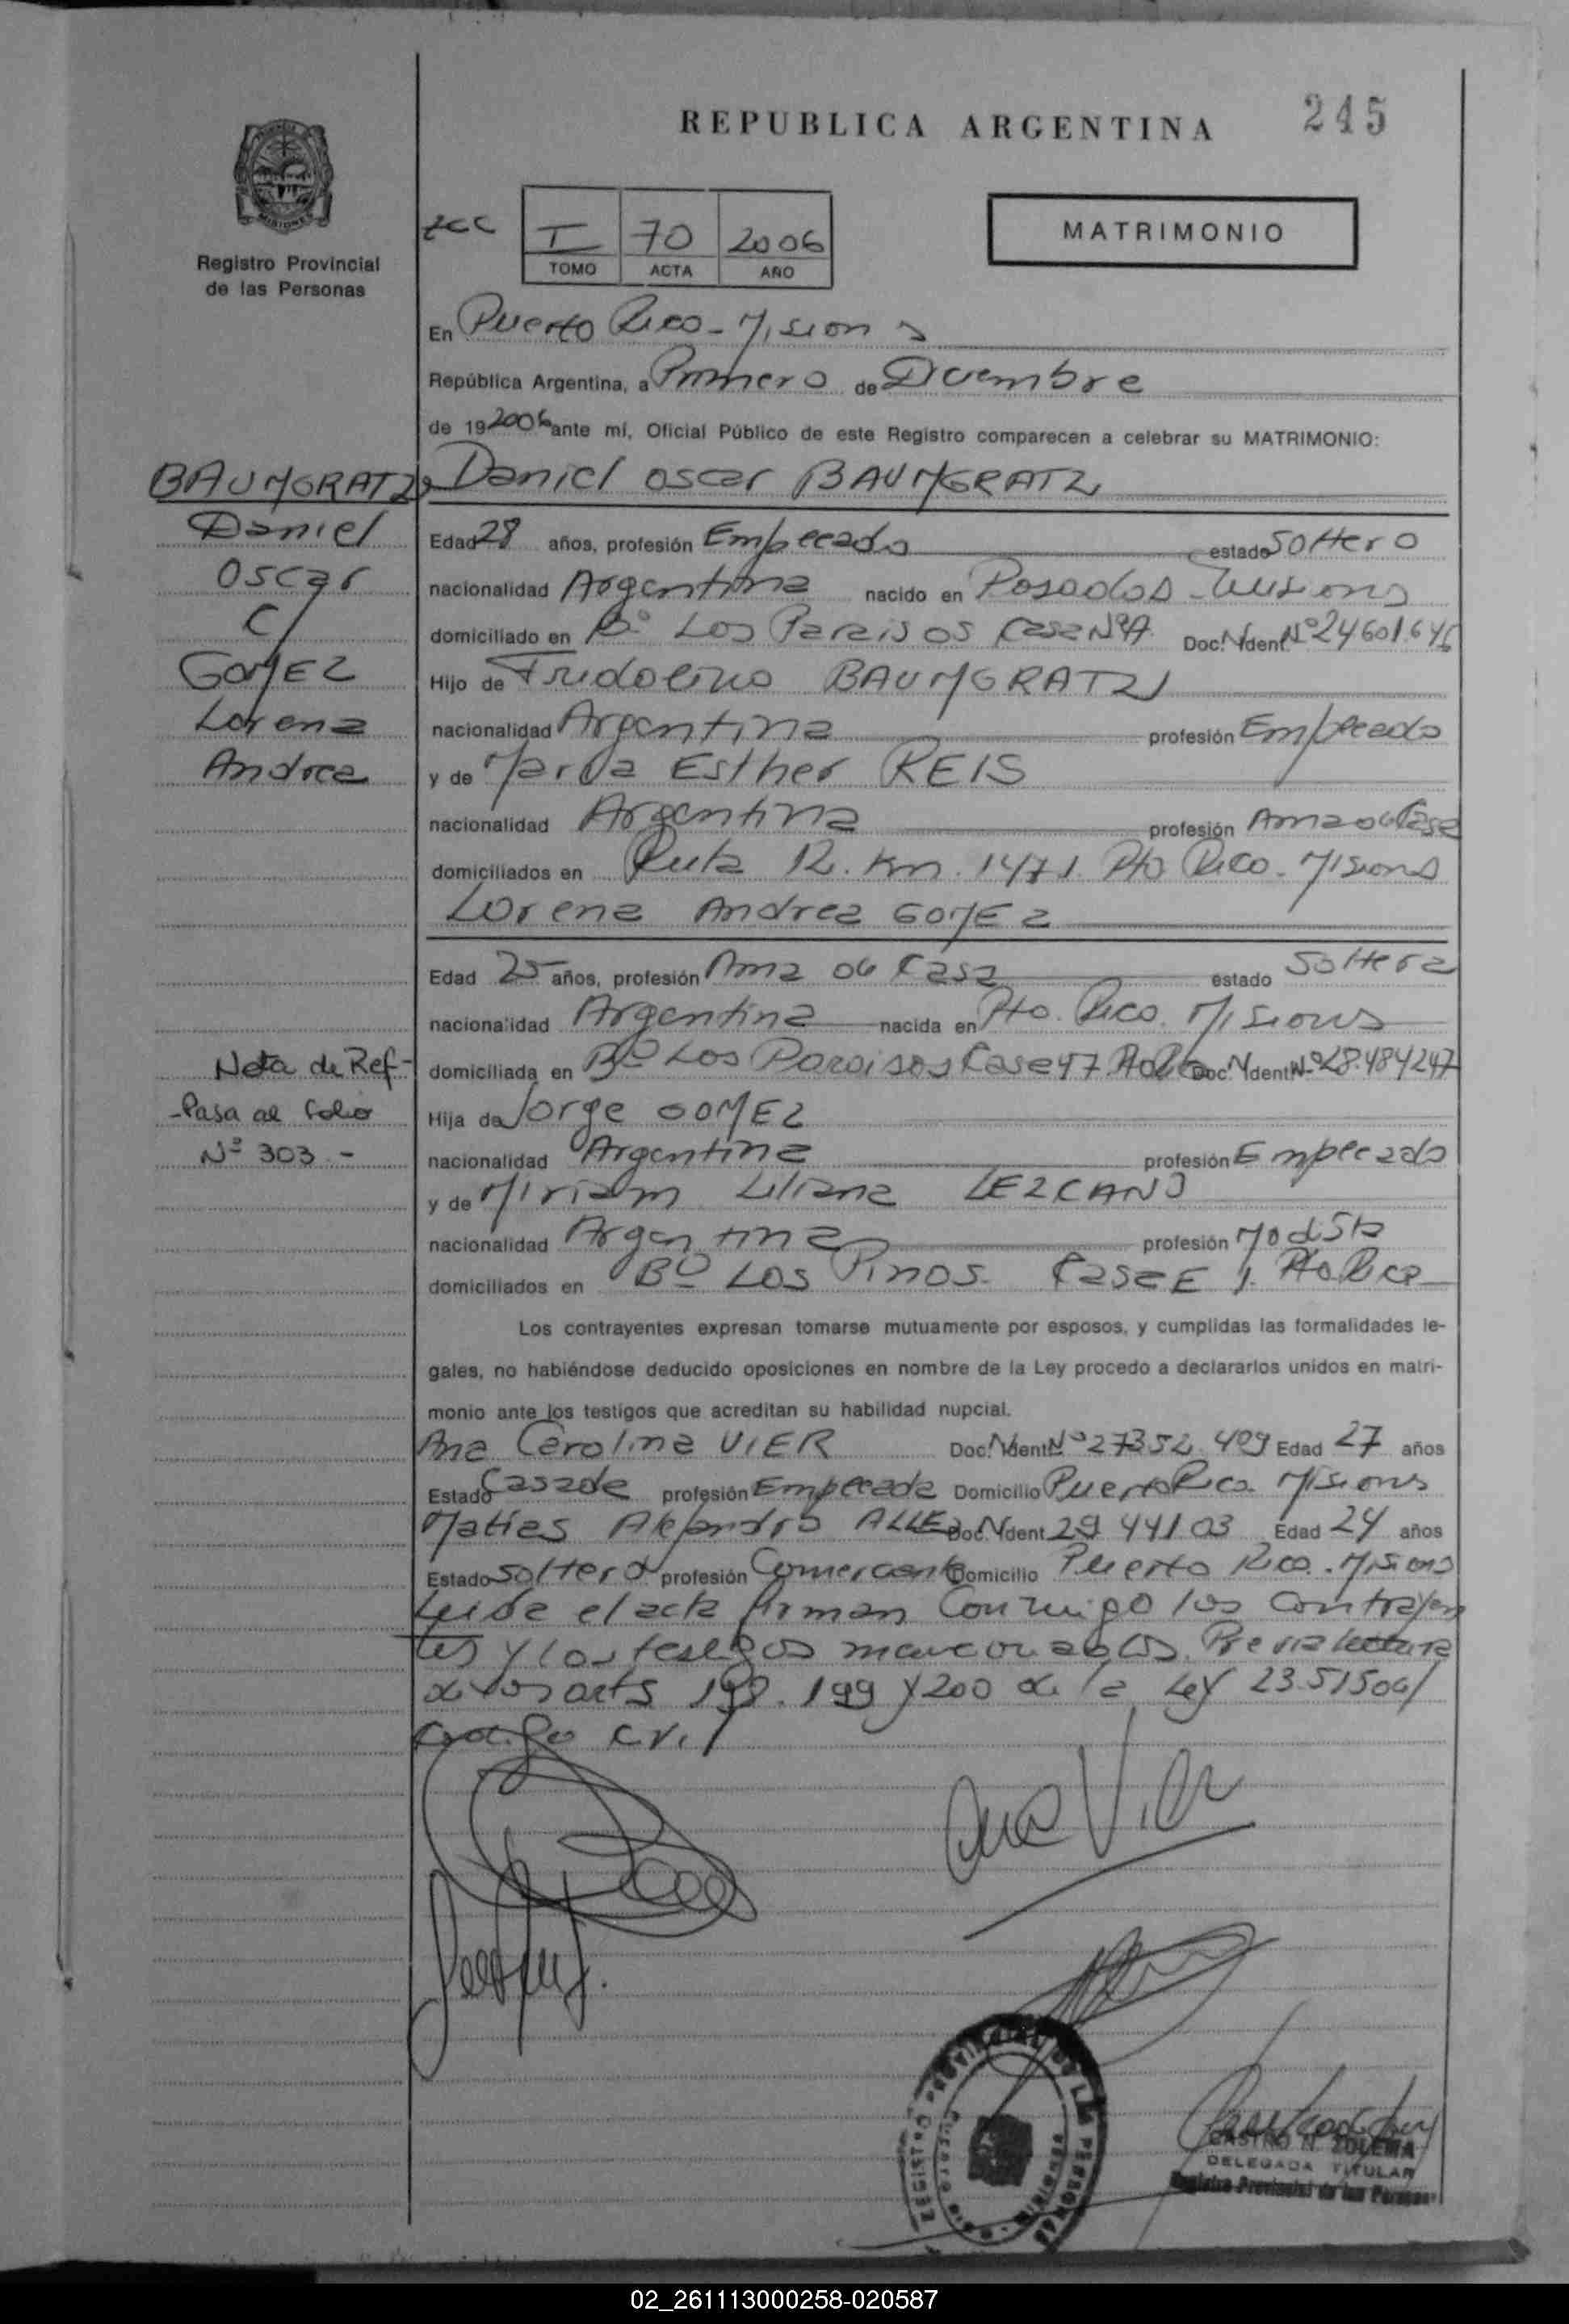 REPUBLICA ARGENTINA
245
Registro Provincial
de las Personas
I 70 2006
TOMO ACTA AÑO
MATRIMONIO
En Puerto Rico - Misiones
República Argentina, a Primero de Diciembre
de 19 2006 ante mí, Oficial Público de este Registro comparecen a celebrar su MATRIMONIO:
Daniel Oscar BAUMGRATZ
BAUMGRATZ
Daniel
Oscar
C/
GOMEZ
Lorena
Andrea
Edad 28 años, profesión Empleado estado Soltero
nacionalidad Argentina nacido en Posadas - Misiones
domiciliado en Bº Los Paraisos Casa Nº Doc. N. Ident. Nº 24601.646
Hijo de Fridolino BAUMGRATZ
nacionalidad Argentina profesión Empleado
y de Maria Esther REIS
nacionalidad Argentina profesión Ama de Casa
domiciliados en Ruta 12. Km. 1471. Pto Rico - Misiones
Lorena Andrea GOMEZ
Edad 25 años, profesión Ama de Casa estado Soltera
nacionalidad Argentina nacida en Pto. Rico. Misiones
domiciliada en Bº Los Paraisos Casa 47 Pto Rico Doc. N. Ident. Nº 28.484247
Hija de Jorge GOMEZ
nacionalidad Argentina profesión Empleado
y de Miriam Liliana LEZCANO
nacionalidad Argentina profesión Modista
domiciliados en Bº Los Pinos. Casa E 1. Pto Rico
Nota de Ref-
-Pasa al folio
Nº 303 -
Los contrayentes expresan tomarse mutuamente por esposos, y cumplidas las formalidades le-
gales, no habiéndose deducido oposiciones en nombre de la Ley procedo a declararlos unidos en matri-
monio ante los testigos que acreditan su habilidad nupcial.
Ana Carolina VIER Doc. N. Ident. Nº 27352.409 Edad 27 años
Estado Casada profesión Empleada Domicilio Puerto Rico. Misiones
Matias Alejandro Doc. N. Ident. 29 441 03 Edad 24 años
Estado Soltero profesión Comerciante Domicilio Puerto Rico. Misiones
Leida el acta firman Conmigo los Contrayen
tes y los testigos mencionados. Previa lectura
de los arts 198. 199 y 200 de la Ley 23.515 del
Codigo Civil
Ana Vier
REGISTRO PROVINCIAL DE LAS PERSONAS
CASTRO N. ZULEMA
DELEGADA TITULAR
Registro Provincial de las Personas
02_261113000258-020587